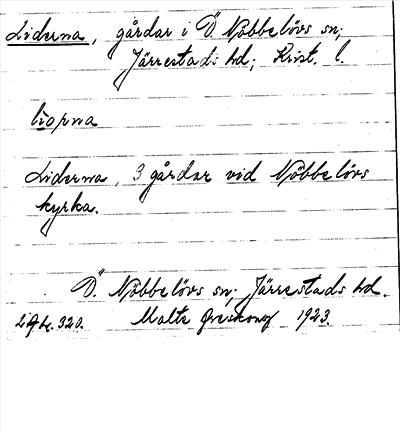 Liderna, gårdar i Ö. Nöbbelövs sn;
Järrestads hd; Krist. l.
Liderna, 3 gårdar vid Nöbbelövs
kyrka.
Ö. Nöbbelövs sn; Järrestads hd.
320. Malte 1923.